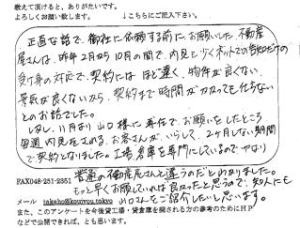 教えて頂けると、ありがたいです。
よろしくお願い致します。 ↓こちらにご記入下さい。
正直な話で、御社に依頼する前にお願いした不動産
屋さんは、昨年2月から10月の間で、内見と少くネットでの告知だけの
受け身の対応で、契約にはほど遠く、物件が良くない、
景気が良くないから、契約まで時間がかかっても仕方ない
とのお話でした。
しかし、11月より山口様に専任で、お願いをしたところ
毎週内見を込める、お客さんが、いらして、2ヶ月しない期間
で契約となりました。工場倉庫を専門にしているのでやはり
普通の不動産屋さんと違うのだと分かりました。
FAX048-251-2351
もっと早くお願いしていれば良かったと思うので、知人にも
メール takeho@kouwou.tokyo 山口さんをご紹介したいと思います。
また、このアンケートを今後貸工場・貸倉庫を探される方の参考のためにHP
などで公開できれば、とも思います。